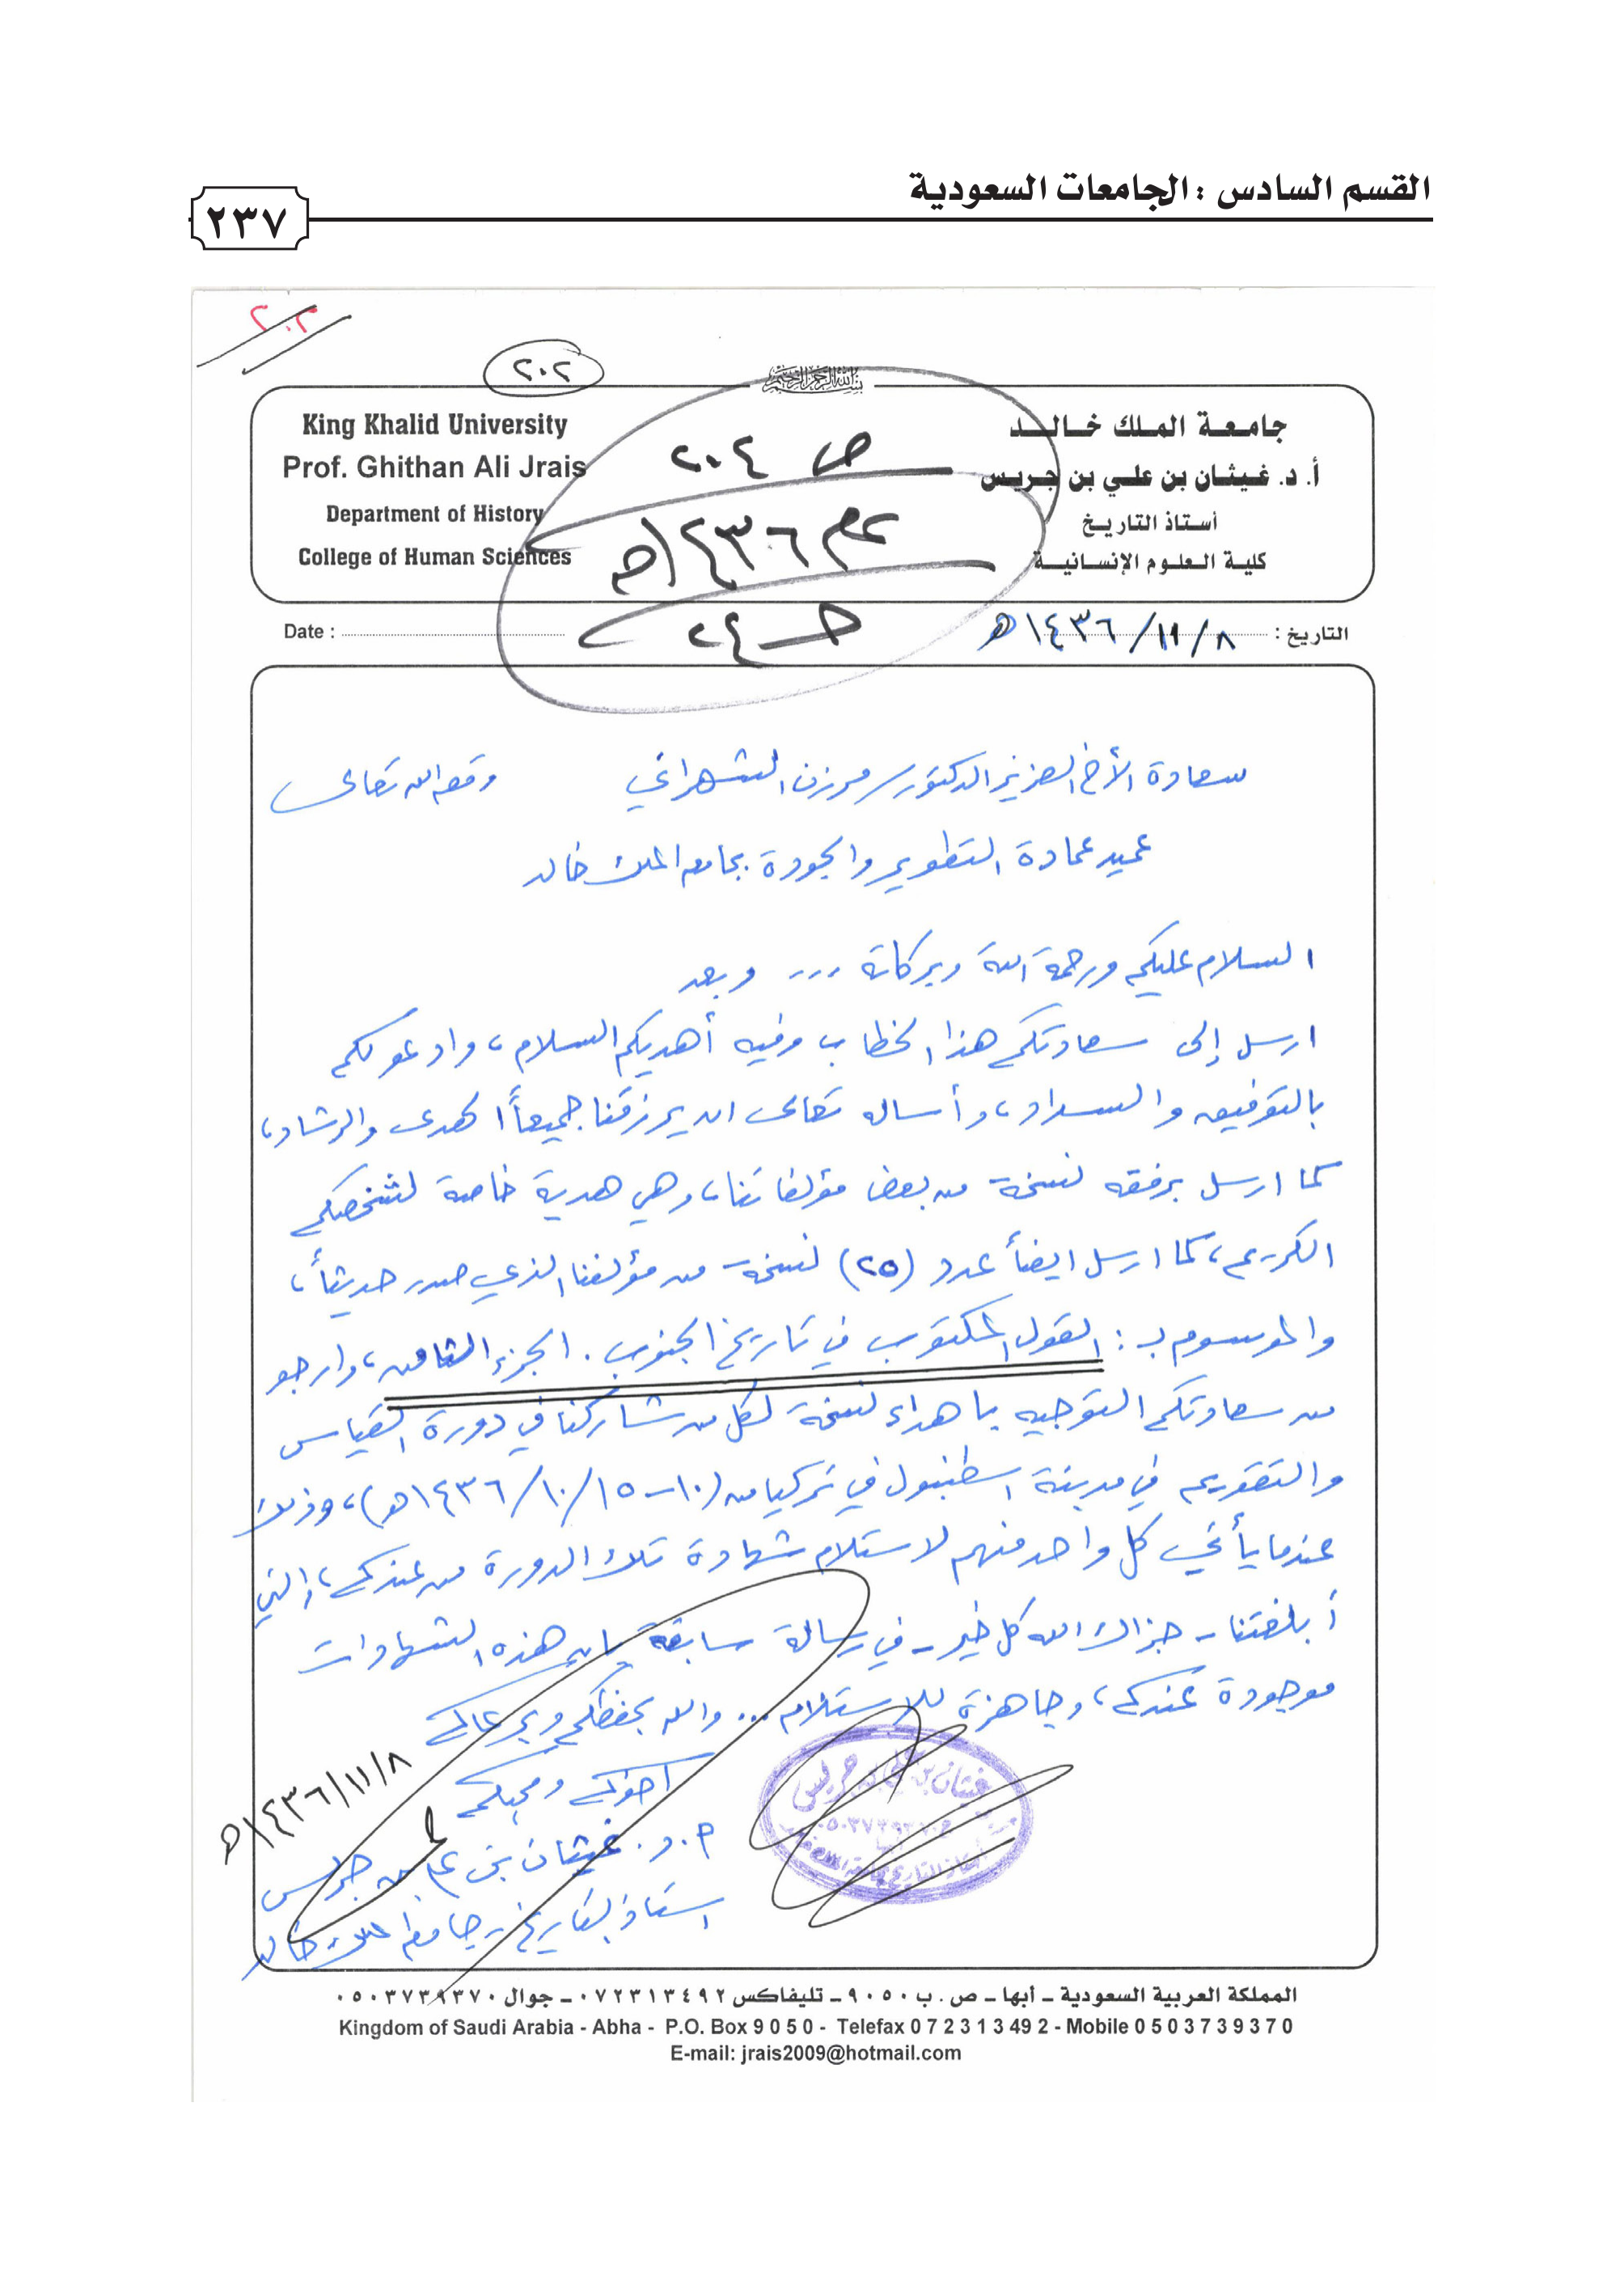 القسم السادس : الجامعات السعودية
٢٣٧
٢٠٢
٢٠٢
بسم الله الرحمن الرحيم
King Khalid University
Prof. Ghithan Ali Jrais
Department of History
College of Human Sciences
جامعة الملك خالد
أ. د. غيثان بن علي بن جريس
أستاذ التاريخ
كلية العلوم الإنسانية
ص ٢٠٤
عام ١٤٣٦هـ
حـ ٢٤
Date :
التاريخ : ٨ / ١١ / ١٤٣٦هـ
سعادة الأخ العزيز الدكتور / مرزن الشهراني وفقه الله تعالى
عميد عمادة التطوير والجودة بجامعة الملك خالد
السلام عليكم ورحمة الله وبركاته ... وبعد
ارسل إلى سعادتكم هذا الخطاب وفيه أهديكم السلام، وادعو لكم
بالتوفيق والسداد، وأساله تعالى ان يرزقنا جميعاً الهدى والرشاد،
كما ارسل برفقه نسخة من بعض مؤلفاتنا، وهي هدية خاصة لشخصكم
الكريم، كما ارسل ايضاً عدد (٢٥) نسخة من مؤلفنا الذي صدر حديثاً،
والموسوم بـ : القول المكتوب في تاريخ الجنوب . الجزء الثامن، وارجو
من سعادتكم التوجيه باهداء نسخة لكل من شاركنا في دورة القياس
والتقويم في مدينة اسطنبول في تركيا من (١٠-١٥/١٠/١٤٣٦هـ)، وذلك
عندما يأتي كل واحد منهم لاستلام شهادة تلك الدورة من عندكم، والتي
أبلغتنا - جزاك الله كل خير - في رسالة سابقة بان هذه الشهادات
موجودة عندكم، وجاهزة للاستلام ... والله يحفظكم ويرعاكم
اخوكم ومحبكم
أ. د. غيثان بن علي بن جريس
استاذ التاريخ بجامعة الملك خالد
٨/١١/١٤٣٦هـ
غيثان بن علي بن جريس
المملكة العربية السعودية ـ أبها ـ ص . ب ٩٠٥٠ ـ تليفاكس ٠٧٢٣١٣٤٩٢ ـ جوال ٠٥٠٣٧٣٩٣٧٠
Kingdom of Saudi Arabia - Abha - P.O. Box 9 0 5 0 - Telefax 0 7 2 3 1 3 49 2 - Mobile 0 5 0 3 7 3 9 3 7 0
E-mail: jrais2009@hotmail.com